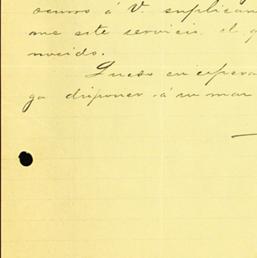 ocurro á V. suplican
me este servicio, el q
nocido.
Quedo en espera
ga disponer á su mar